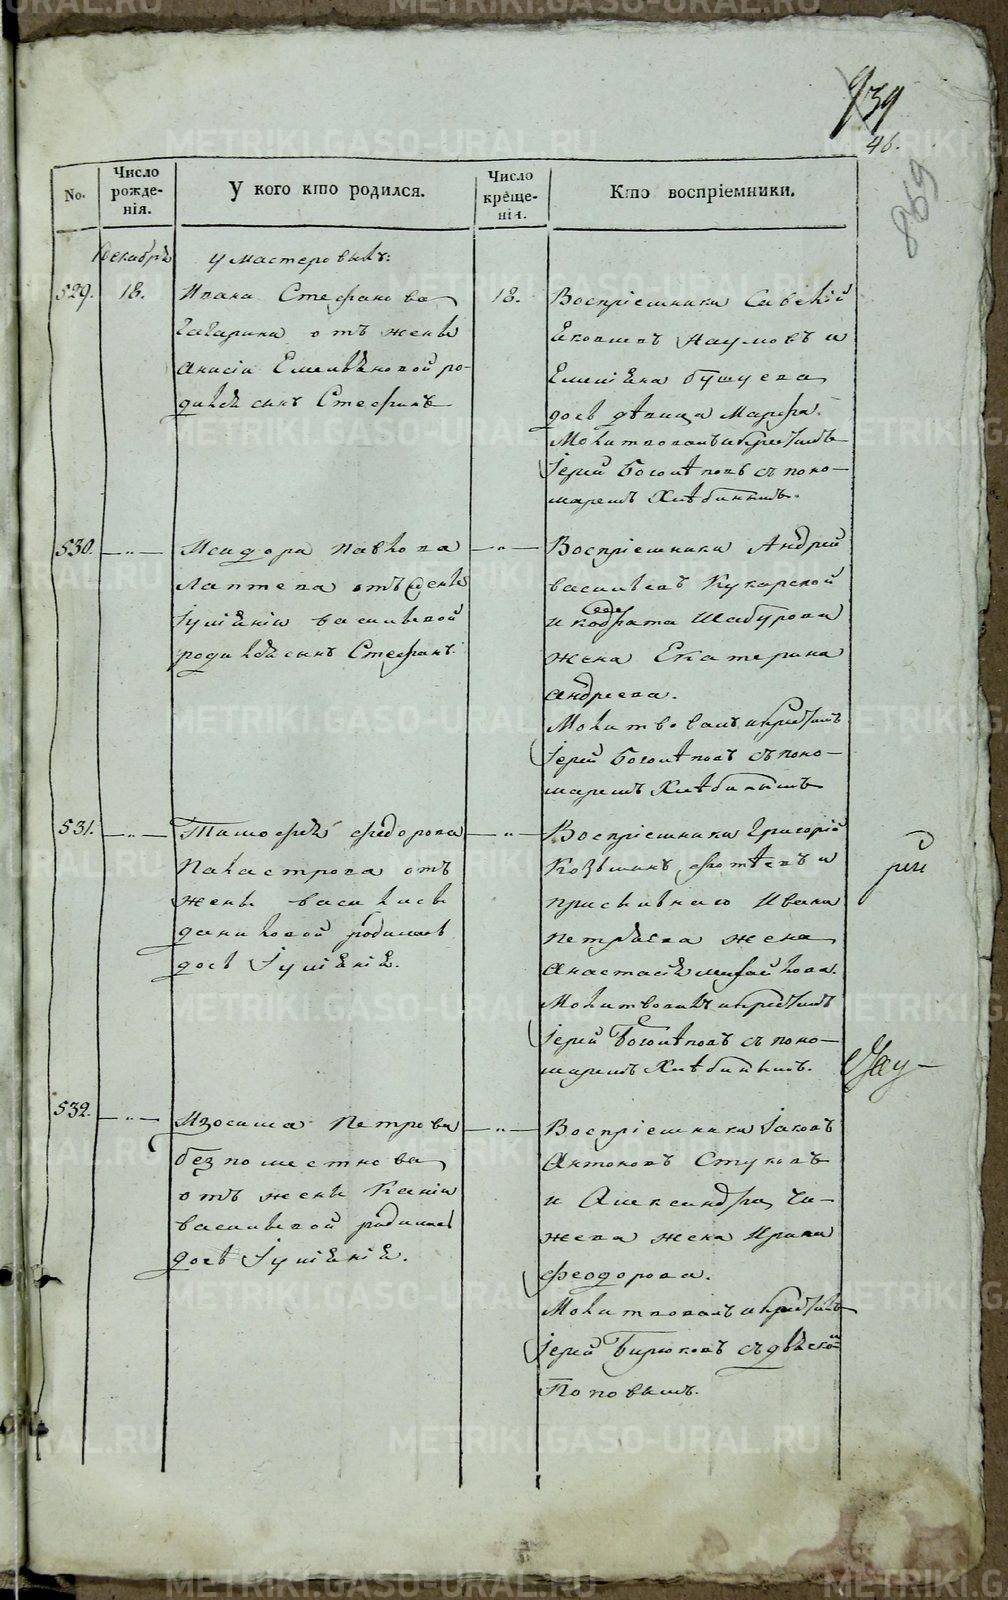 939
46.
869
No.
Число рожде-нія.
У кого кто родился.
Число креще-нія.
Кто воспріемники.
Декабрь
у мастеровыхъ:
529.
18.
Ивана Стефанова
Гагарина отъ жены
Анисіи Емельяновой ро-
дился сынъ Стефанъ
18.
Воспріемники Савелій
Яковлевъ Наумовъ и
Емеліяна Бушуева
дочь дѣвица Марфа.
Молитвовалъ и крестилъ
Іерей Боголѣповъ съ поно-
маремъ Хлѣбинымъ.
530.
— „ —
Исидора Павлова
Лаптева отъ жены
Іуліяніи Васильевой
родился сынъ Стефанъ.
— „ —
Воспріемники Андрей
Васильевъ Кукарской
и Кодрата Шабурова
жена Екатерина
Андреева.
Молитвовалъ и крестилъ
Іерей Боголѣповъ съ поно-
маремъ Хлѣбинымъ
531.
— „ —
Тимофея Федорова
Паластрова отъ
жены Василисы
Даниловой родилась
дочь Іуліянія.
— „ —
Воспріемники Григорій
Козьминъ Фотѣевъ и
присыльнаго Ивана
Петряева жена
Анастасія Михайлова.
Молитвовалъ и крестилъ
Іерей Боголѣповъ съ поно-
маремъ Хлѣбинымъ.
рей
532.
— „ —
Изосима Петрова
Безпоместнова
отъ жены Ксеніи
Васильевой родилась
дочь Іуліянія.
— „ —
Воспріемники Іаковъ
Антоновъ Стуковъ
и Александра Чи-
жева жена Ирина
Феодорова.
Молитвовалъ и крестилъ
Іерей Бирюковъ съ дьячкомъ
Поповымъ.
METRIKI.GASO-URAL.RU